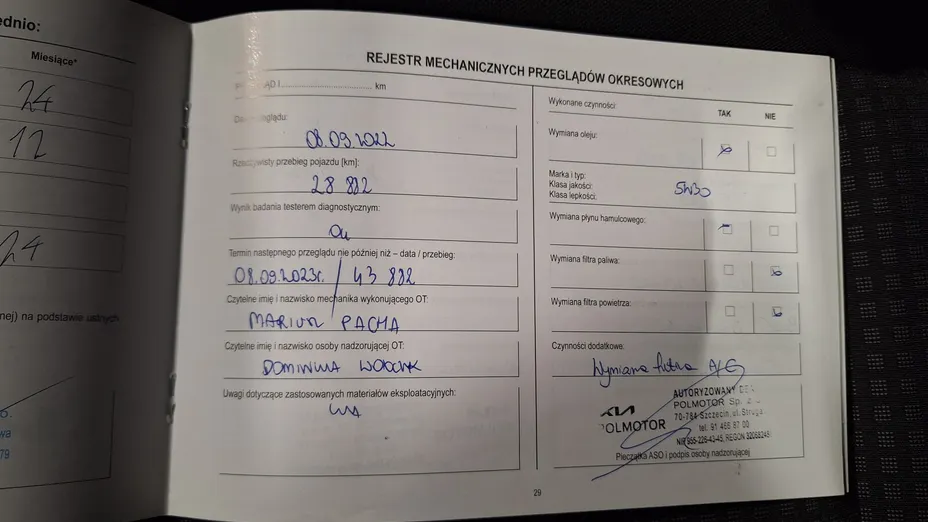 ednio:
Miesiące*
24
12
24
nej) na podstawie ustnych
REJESTR MECHANICZNYCH PRZEGLĄDÓW OKRESOWYCH
km
08.09.2022
Rzeczywisty przebieg pojazdu [km]:
28 882
Wynik badania testerem diagnostycznym:
Termin następnego przeglądu nie później niż – data / przebieg:
08.09.2023r. / 43 882
Czytelne imię i nazwisko mechanika wykonującego OT:
MARIUSZ PACHA
Czytelne imię i nazwisko osoby nadzorującej OT:
DOMINIKA
Uwagi dotyczące zastosowanych materiałów eksploatacyjnych:
Wykonane czynności:
TAK NIE
Wymiana oleju:
Marka i typ:
Klasa jakości:
Klasa lepkości:
5W30
Wymiana płynu hamulcowego:
Wymiana filtra paliwa:
Wymiana filtra powietrza:
Czynności dodatkowe:
Wymiana filtra A/C
KIA
POLMOTOR
AUTORYZOWANY
POLMOTOR Sp.
70-784 Szczecin, ul. Struga
tel. 91 466 87 00
Pieczątka ASO i podpis osoby nadzorującej
29